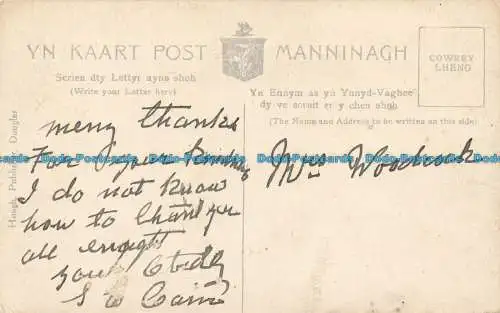 YN KAART POST MANNINAGH
COWREY
LHENG
Scrieu dty Lettyr ayns shoh
(Write your Letter here)
Yn Ennym as yn Ynnyd-Vaghee
dy ve scruit er y cheu shoh
(The Name and Address to be written on this side)
many thanks
For your kindness
I do not know
how to thank you
all enough
your
Mrs Woodcock
Douglas